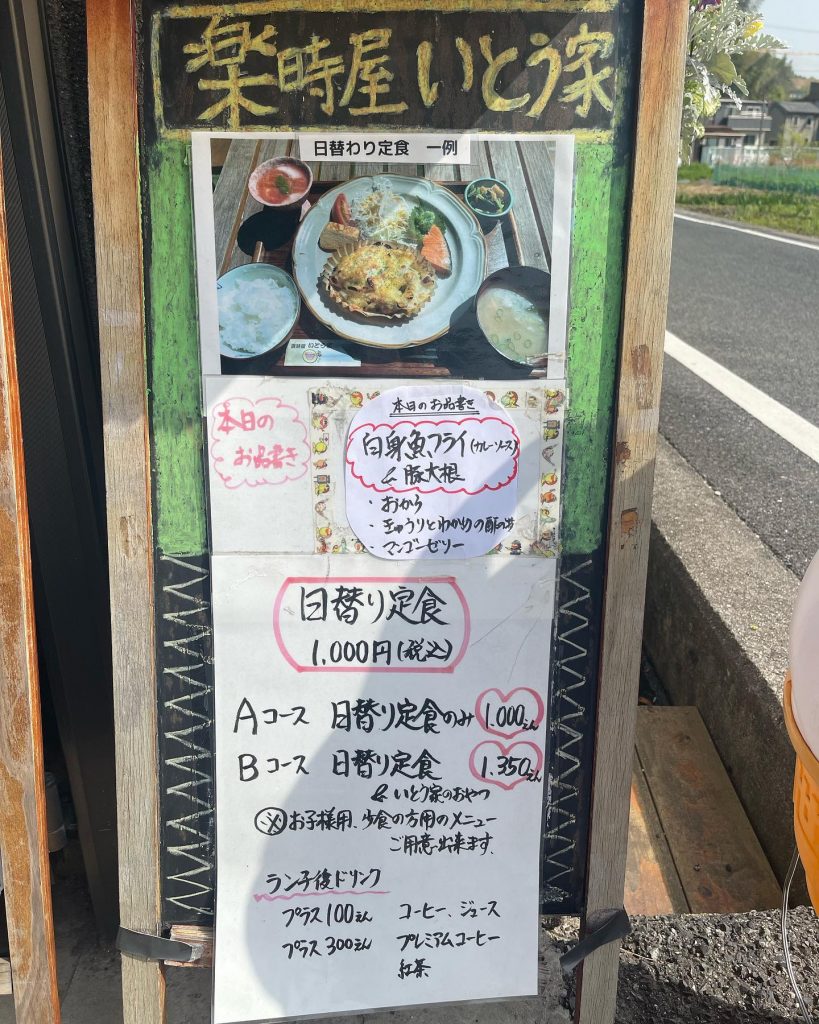 楽時屋 いとう家
日替わり定食 一例
本日の
お品書き
本日のお品書き
白身魚フライ(カレーソース)
& 豚大根
・おから
・きゅうりとわかめの酢の物
・マンゴーゼリー
日替り定食
1,000円(税込)
Aコース 日替り定食のみ 1.000えん
Bコース 日替り定食 1.350えん
& いとう家のおやつ
※お子様用、少食の方用のメニュー
ご用意出来ます。
ランチ後ドリンク
プラス100えん コーヒー、ジュース
プラス300えん プレミアムコーヒー
紅茶